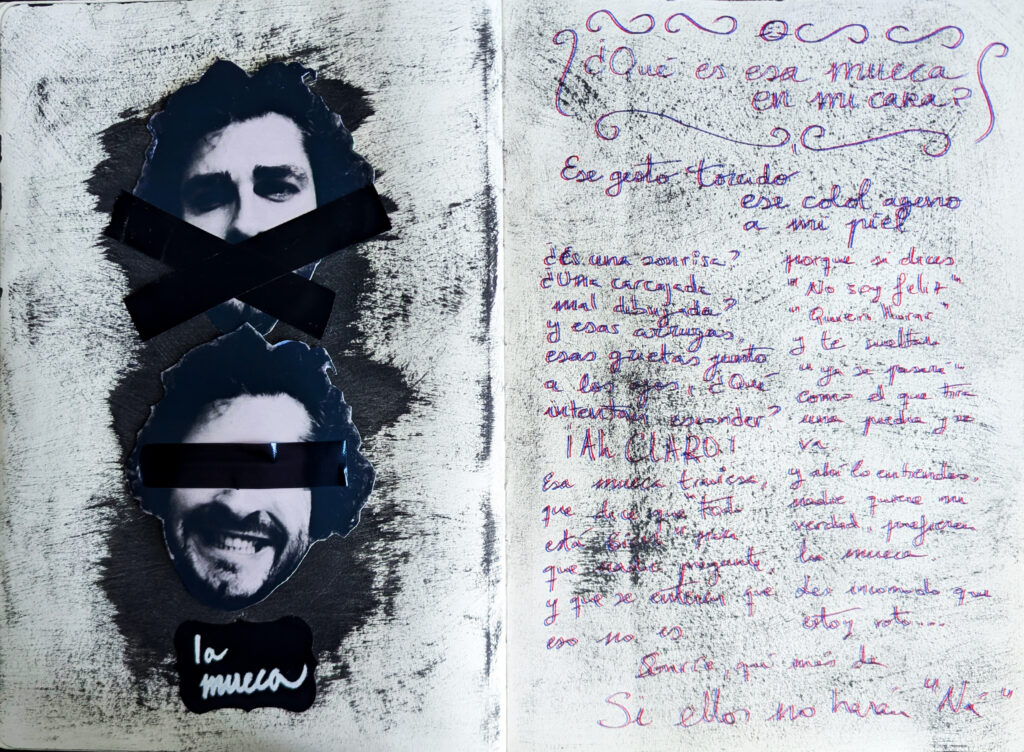 la
mueca
¿Qué es esa mueca
en mi cara?
Ese gesto torcido
ese color ageno
a mi piel
¿Es una sonrisa?
¿Una carcajada
mal dibujada?
y esas arrugas,
esas grietas junto
a los ojos, ¿Qué
intentan esconder?
¡Ah CLARO!
Esa mueca traviesa,
que dice que "todo
esta bien" para
que nadie pregunte,
y que se enteren que
eso no es
porque si dices
"No soy feliz"
"Quiero llorar"
y te sueltan
"ya se pasará"
como el que tira
una piedra y se
va
y ahí lo entiendes,
nadie quiere mi
verdad, prefieren
la mueca
des incomodo que
estoy roto...
Sonrie, qué más da
Si ellos no harán "Ná"